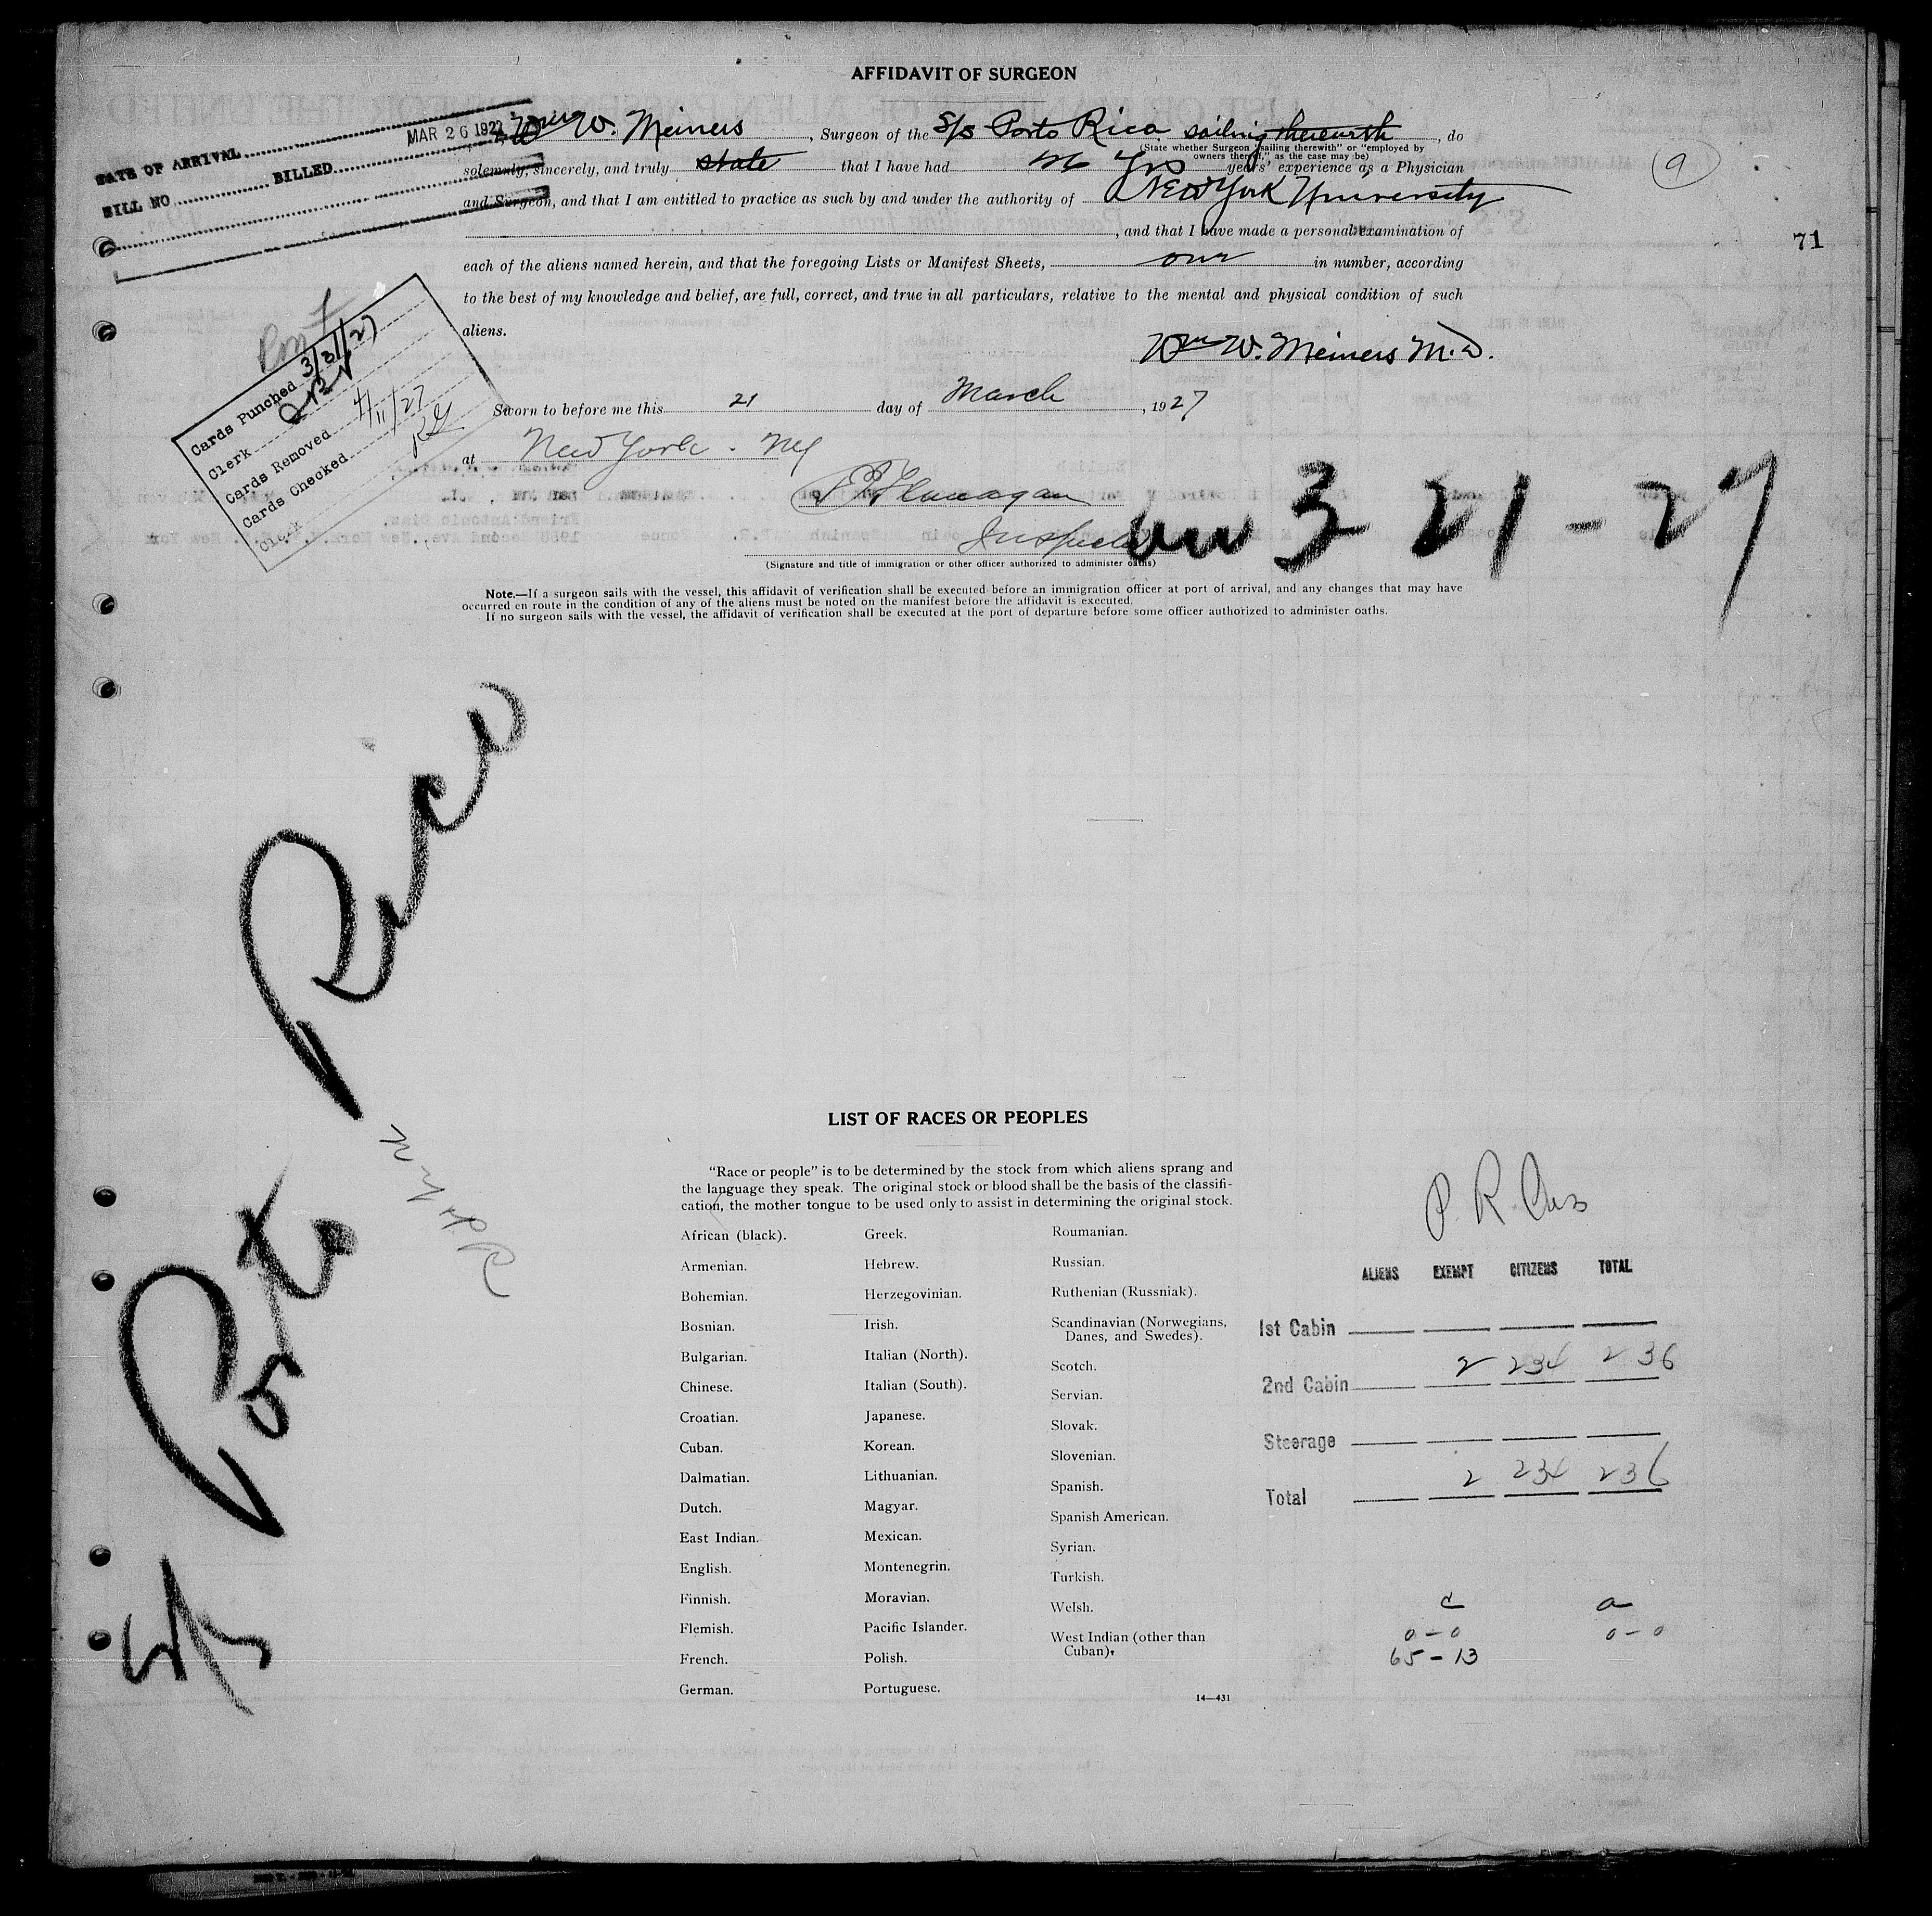 AFFIDAVIT OF SURGEON
DATE OF ARRIVAL
MAR 26 1927
BILL NO. BILLED
I, Wm W. Meiners, Surgeon of the S/S Porto Rico sailing therewith, do
(State whether Surgeon "sailing therewith" or "employed by
owners thereof," as the case may be)
solemnly, sincerely, and truly state that I have had Yrs years' experience as a Physician
and Surgeon, and that I am entitled to practice as such by and under the authority of New York University
, and that I have made a personal examination of
each of the aliens named herein, and that the foregoing Lists or Manifest Sheets, one in number, according
to the best of my knowledge and belief, are full, correct, and true in all particulars, relative to the mental and physical condition of such
aliens.
9
71
Wm W. Meiners M.D.
Cards Punched 3/31/27
Clerk
Cards Removed 4/11/27
Cards Checked
Clerk
Sworn to before me this 21 day of March, 1927
at New York . NY
Flanagan
Inspector
3 21 - 27
(Signature and title of immigration or other officer authorized to administer oaths)
Note.—If a surgeon sails with the vessel, this affidavit of verification shall be executed before an immigration officer at port of arrival, and any changes that may have
occurred en route in the condition of any of the aliens must be noted on the manifest before the affidavit is executed.
If no surgeon sails with the vessel, the affidavit of verification shall be executed at the port of departure before some officer authorized to administer oaths.
S/S Porto Rico
LIST OF RACES OR PEOPLES
"Race or people" is to be determined by the stock from which aliens sprang and
the language they speak. The original stock or blood shall be the basis of the classifi-
cation, the mother tongue to be used only to assist in determining the original stock.
African (black). Greek. Roumanian.
Armenian. Hebrew. Russian.
Bohemian. Herzegovinian. Ruthenian (Russniak).
Bosnian. Irish. Scandinavian (Norwegians,
Danes, and Swedes).
Bulgarian. Italian (North). Scotch.
Chinese. Italian (South). Servian.
Croatian. Japanese. Slovak.
Cuban. Korean. Slovenian.
Dalmatian. Lithuanian. Spanish.
Dutch. Magyar. Spanish American.
East Indian. Mexican. Syrian.
English. Montenegrin. Turkish.
Finnish. Moravian. Welsh.
Flemish. Pacific Islander. West Indian (other than
Cuban).
French. Polish.
German. Portuguese.
14—431
P. R.
ALIENS EXEMPT CITIZENS TOTAL
1st Cabin
2nd Cabin 2 234 236
Steerage
Total 2 234 236
c a
0 - 0 0 - 0
65 - 13